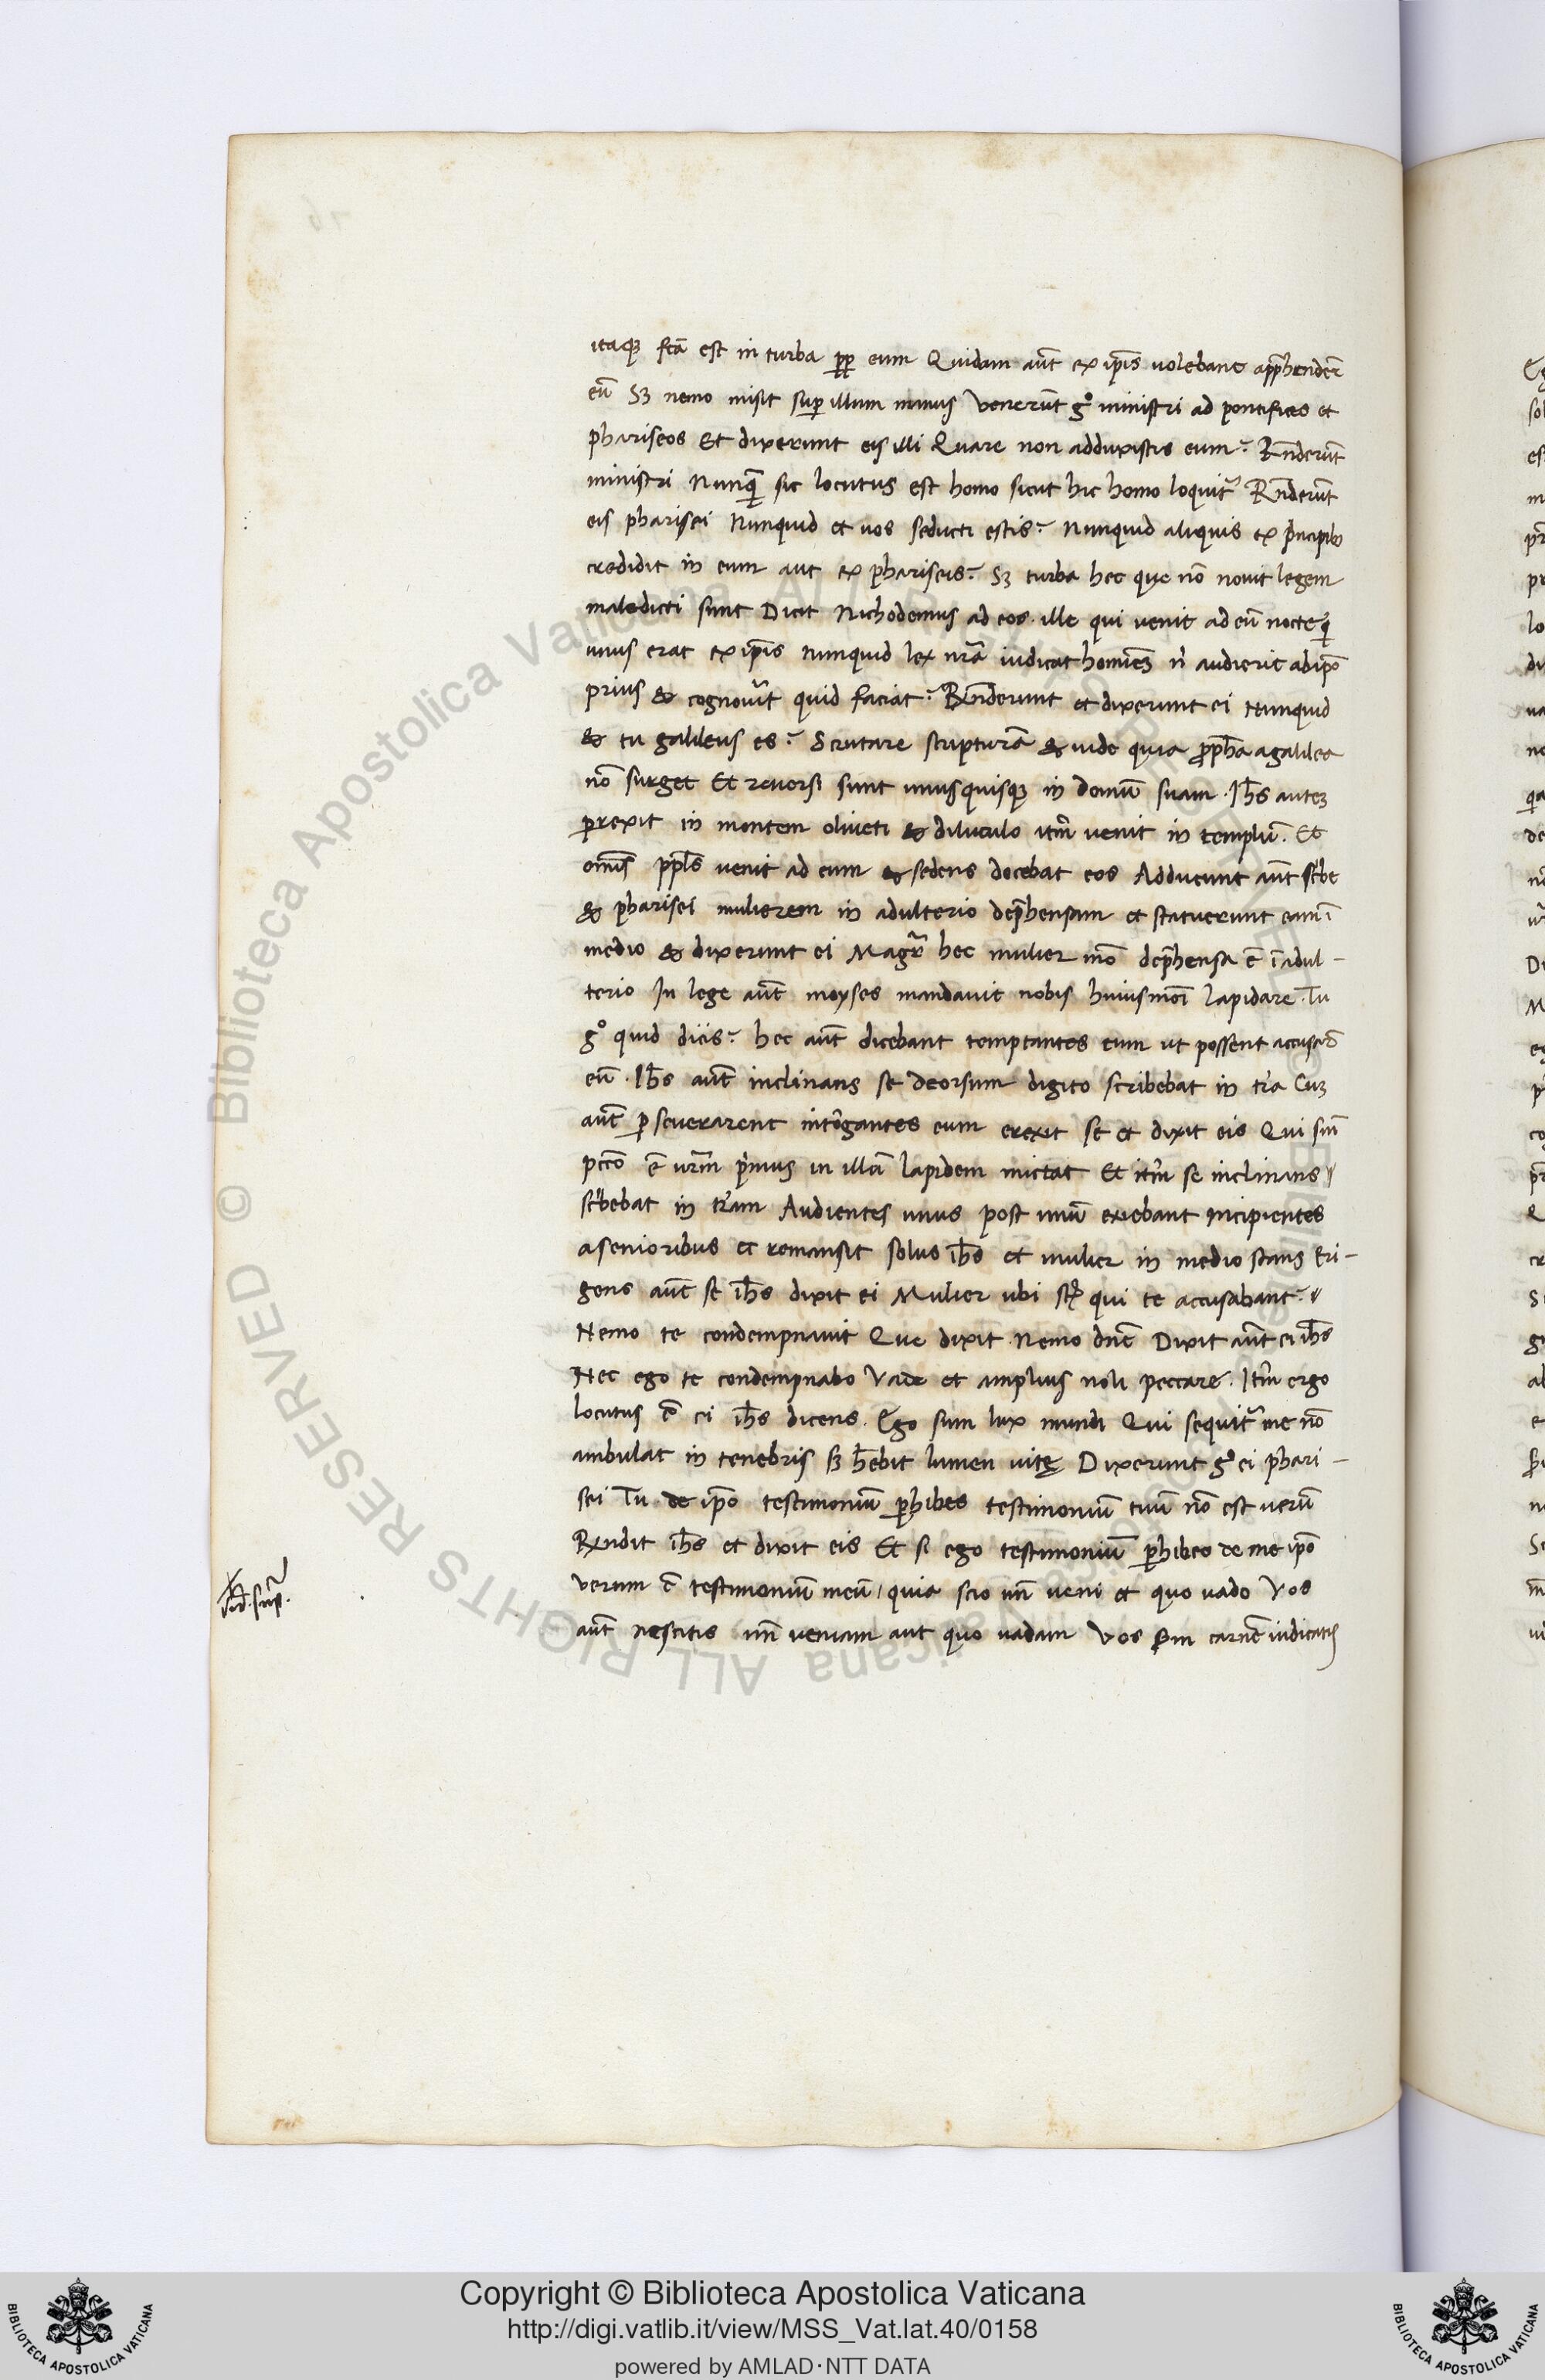 itaqꝫ fcā est in turba ꝓpꝑ eum Quidam aūt ex ip̄is uolebant app̄hender̄
eū Sꝫ nemo misit suꝑ illum manus Venerūt gͦ ministri ad pontifices et
phariseos Et dixerunt eis illi Quare non adduxistis eum? Rn̄derūt
ministri Nunqꝫ sic locutus est homo sicut hic homo loquit᷑ Rn̄derūt
eis pharisei Nunquid et uos seducti estis? Nunquid aliquis ex p̓ncipibꝫ
credidit in eum aut ex phariseis? Sꝫ turba hec que nō nouit legem
maledicti sunt Dicit Nichodemus ad eos. ille qui venit ad eū nocte qͥ
unus erat ex ip̄is nunquid lex nr̄a iudicat homiēs nͥ audierit ab ip̄o
prius & cognouit᷑ quid faciat? Rn̄derunt et dixerunt ei Nunquid
& tu galileus es? Scrutare scripturā & uide quia ꝓpha̅ a galilea
nō surget Et reuersi sunt unusquisqꝫ in domū suam. Ihs̄ autez
perrexit in montem oliueti & diluculo itm̄ venit in templū. Et
omīs ppl̄s venit ad eum & sedens docebat eos Adducunt aūt scͥbe
& pharisei mulierem in adulterio dep̄hensam et statuerunt eam ī
medio & dixerunt ei Magr̄ hec mulier mō dep̄hensa ē ī adul-
terio In lege aūt moyses mandauit nobis huiusmōi lapidare. Tu
gͦ quid dicis? hec aūt dicebant temptantes eum ut possent accusar̄
eū. Ihs̄ aūt inclinans se deorsum digito scribebat in tr̄a Cuꝫ
aūt ꝑseuerarent int̄rogantes eum erexit se et dixit eis Qui sin̄
pccō ē vr̄m p̓mus in illā lapidem mittat Et itm̄ se inclinans
scͥbebat in tr̄am Audientes unus post unū exiebant incipientes
a senioribus et remansit solus ihs̄ et mulier in medio stans Eri-
gens aūt se ihs̄ dixit ei Mulier ubi st̄ qui te accusabant?
Nemo te condempnauit Que dixit. Nemo dn̄e Dixit aūt ei ihs̄
Nec ego te condempnabo Vade et amplius noli peccare. Itm̄ ergo
locutus ē ei ihs̄ dicens. Ego sum lux mundi Qui sequit᷑ me nō
ambulat in tenebris sꝫ hēbit lumen uitę Dixerunt gͦ ei phari-
sei Tu de ip̄o testimoniū ꝑhibes testimoniū tuū nō est uerū
Rn̄dit ihs̄ et dixit eis Et si ego testimoniū ꝑhibeo de me ip̄o
verum ē testimoniū meū / quia scio un̄ veni et quo uado Vos
aūt nescitis un̄ veniam aut quo uadam Vos scd̄m carnē iudicatis
Copyright © Biblioteca Apostolica Vaticana
http://digi.vatlib.it/view/MSS_Vat.lat.40/0158
powered by AMLAD·NTT DATA